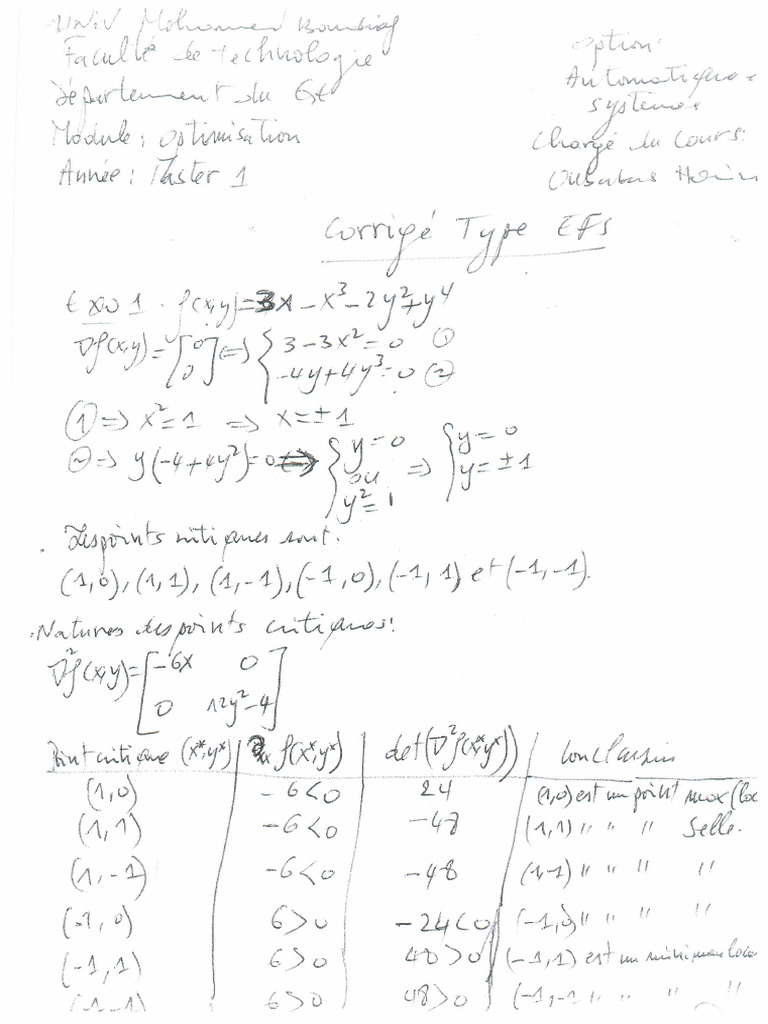 Univ Mohamed Boudiaf
Faculté de technologie
Département du GE
Module : optimisation
Année : Master 1
option:
Automatique
systèmes
Chargé du cours:
Corrigé Type EFS
Exo 1 . f(x,y)=3x-x³-2y²+y⁴
∇f(x,y)=[0 0] <=> { 3-3x²=0 ①
-4y+4y³=0 ②
① => x²=1 => x=±1
② => y(-4+4y²)=0 <=> { y=0 ou y²=1 => { y=0 y=±1
. Les points critiques sont.
(1,0), (1,1), (1,-1), (-1,0), (-1,1) et (-1,-1).
. Natures des points critiques!
∇²f(x,y)=[-6x 0
0 12y²-4]
Point critique (x*,y*) | f(x*,y*) | det(∇²f(x*,y*)) | Conclusion
(1,0) -6<0 24 (1,0) est un point max (loc
(1,1) -6<0 -48 (1,1) " " " Selle.
(1,-1) -6<0 -48 (1,-1) " " " "
(-1,0) 6>0 -24<0 (-1,0) " " " "
(-1,1) 6>0 48>0 (-1,1) est un minimum loca
(-1,-1) 6>0 48>0 (-1,-1 " " " "